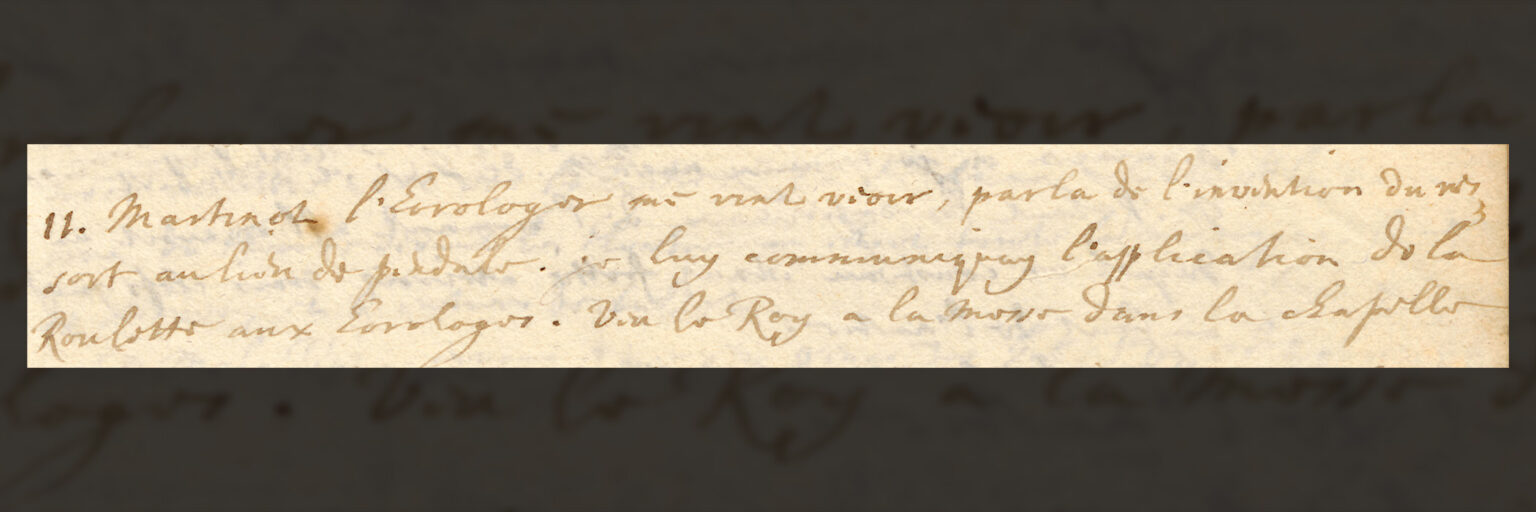 11. Martinot l'Eorologer me vint veoir, parla de l'invention du res,
sort au lieu de pendule. je luy communiquay l'application de la
Roulette aux Eorologes. Veu le Roy a la messe dans la chapelle